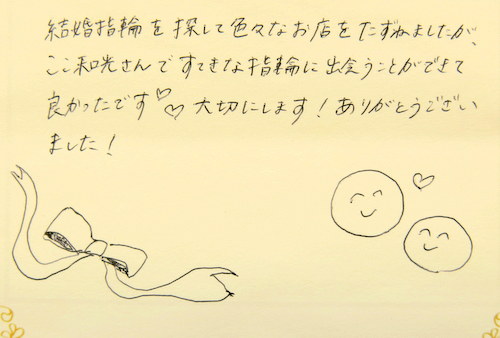 結婚指輪を探して色々なお店をたずねましたが、
ここ和光さんですてきな指輪に出会うことができて
良かったです♡♡大切にします!ありがとうござい
ました!